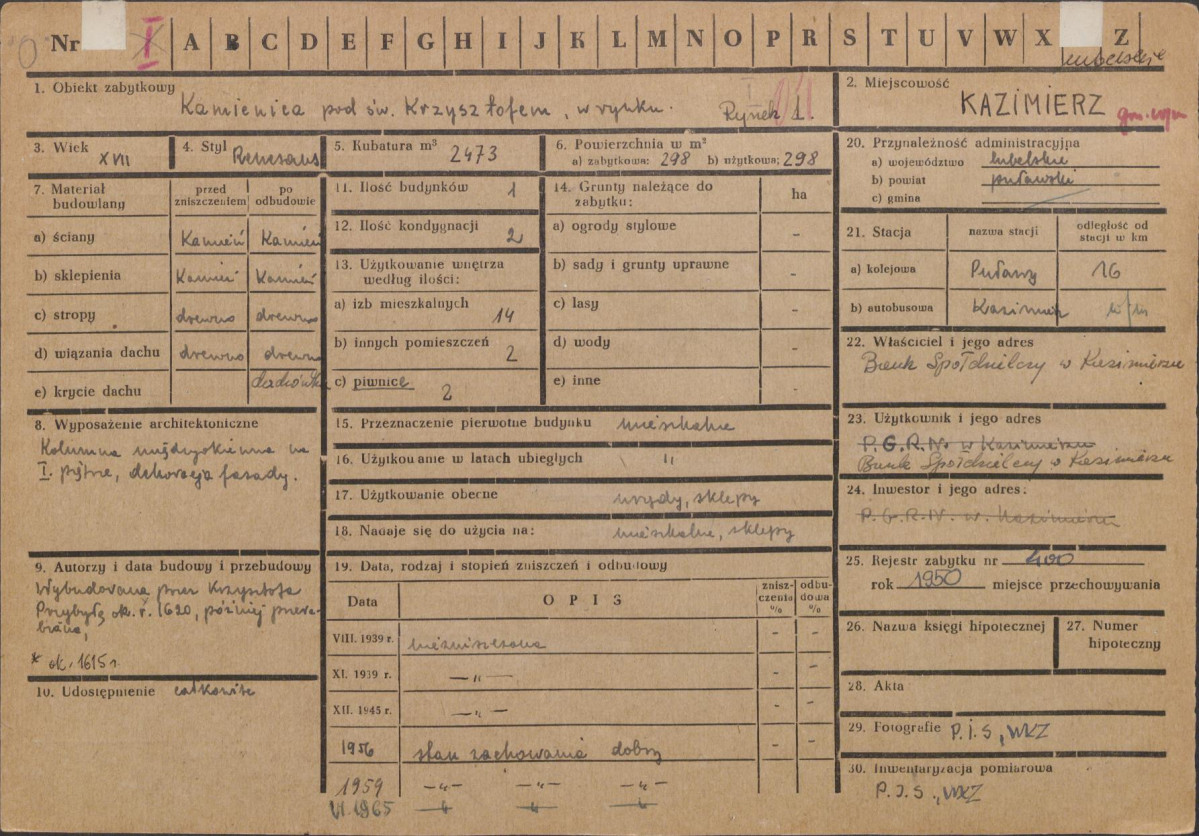 Nr I A B C D E F G H I J K L M N O P R S T U V W X Z
lubelskie
1. Obiekt zabytkowy
Kamienica pod św. Krzysztofem, w rynku. Rynek 1.
2. Miejscowość
KAZIMIERZ
3. Wiek XVII
4. Styl Renesans
5. Kubatura m³ 2473
6. Powierzchnia w m²
a) zabytkowa: 298 b) użytkowa: 298
20. Przynależność administracyjna
a) województwo lubelskie
b) powiat puławski
c) gmina
7. Materiał budowlany
przed zniszczeniem
po odbudowie
a) ściany Kamień Kamień
b) sklepienia Kamień Kamień
c) stropy drewno drewno
d) wiązania dachu drewno drewno
e) krycie dachu dachówka
11. Ilość budynków 1
12. Ilość kondygnacji 2
13. Użytkowanie wnętrza
według ilości:
a) izb mieszkalnych 14
b) innych pomieszczeń 2
c) piwnice 2
14. Grunty należące do
zabytku: ha
a) ogrody stylowe -
b) sady i grunty uprawne -
c) lasy -
d) wody -
e) inne -
21. Stacja
nazwa stacji
odległość od
stacji w km
a) kolejowa Puławy 16
b) autobusowa Kazimierz w/m
22. Właściciel i jego adres
Bank Spółdzielczy w Kazimierzu
8. Wyposażenie architektoniczne
Kolumna międzyokienna na
I. piętrze, dekoracja fasady.
15. Przeznaczenie pierwotne budynku mieszkalne
16. Użytkowanie w latach ubiegłych "
17. Użytkowanie obecne urzędy, sklepy
18. Nadaje się do użycia na: mieszkalne, sklepy
23. Użytkownik i jego adres
P.G.R.N. w Kazimierzu
Bank Spółdzielczy w Kazimierzu
24. Inwestor i jego adres:
P.G.R.N. w. Kazimierzu
9. Autorzy i data budowy i przebudowy
Wybudowana przez Krzysztofa
Przybyłę ok. r. 1620, później przera-
biana,
* ok. 1615 r.
10. Udostępnienie całkowite
19. Data, rodzaj i stopień zniszczeń i odbudowy
Data
OPIS
znisz-
czenia
%
odbu-
dowa
%
VIII. 1939 r. niezniszczona - -
XI. 1939 r. —"— - -
XII. 1945 r. —"— - -
1956 stan zachowania dobry - -
1959 —"— —"— —"—
VI.1965 —"— —"— —"—
25. Rejestr zabytku nr 400
rok 1950 miejsce przechowywania
26. Nazwa księgi hipotecznej
27. Numer
hipoteczny
28. Akta
29. Fotografie P.I.S., WKZ
30. Inwentaryzacja pomiarowa
P.I.S., WKZ